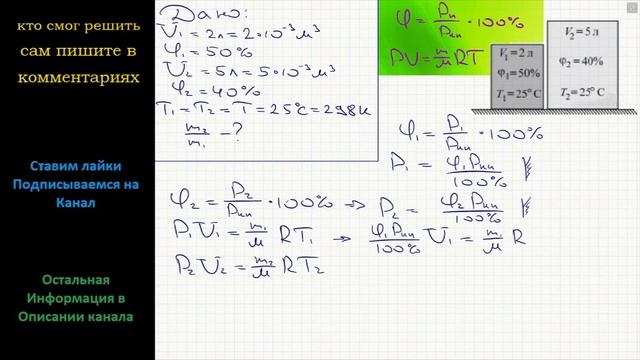 кто смог решить
сам пишите в
комментариях
Ставим лайки
Подписываемся на
Канал
Остальная
Информация в
Описании канала
Дано:
V₁ = 2л = 2·10⁻³ м³
φ₁ = 50%
V₂ = 5л = 5·10⁻³ м³
φ₂ = 40%
T₁ = T₂ = T = 25°C = 298к
m₂/m₁ - ?
φ = Pп/Pнп · 100%
PV = m/μ RT
V₁ = 2 л
φ₁ = 50%
T₁ = 25° C
V₂ = 5 л
φ₂ = 40%
T₂ = 25° C
φ₁ = P₁/Pнп · 100%
P₁ = φ₁Pнп/100%
φ₂ = P₂/Pнп · 100% => P₂ = φ₂Pнп/100%
P₁V₁ = m₁/μ RT₁ => φ₁Pнп/100% V₁ = m₁/μ R
P₂V₂ = m₂/μ RT₂